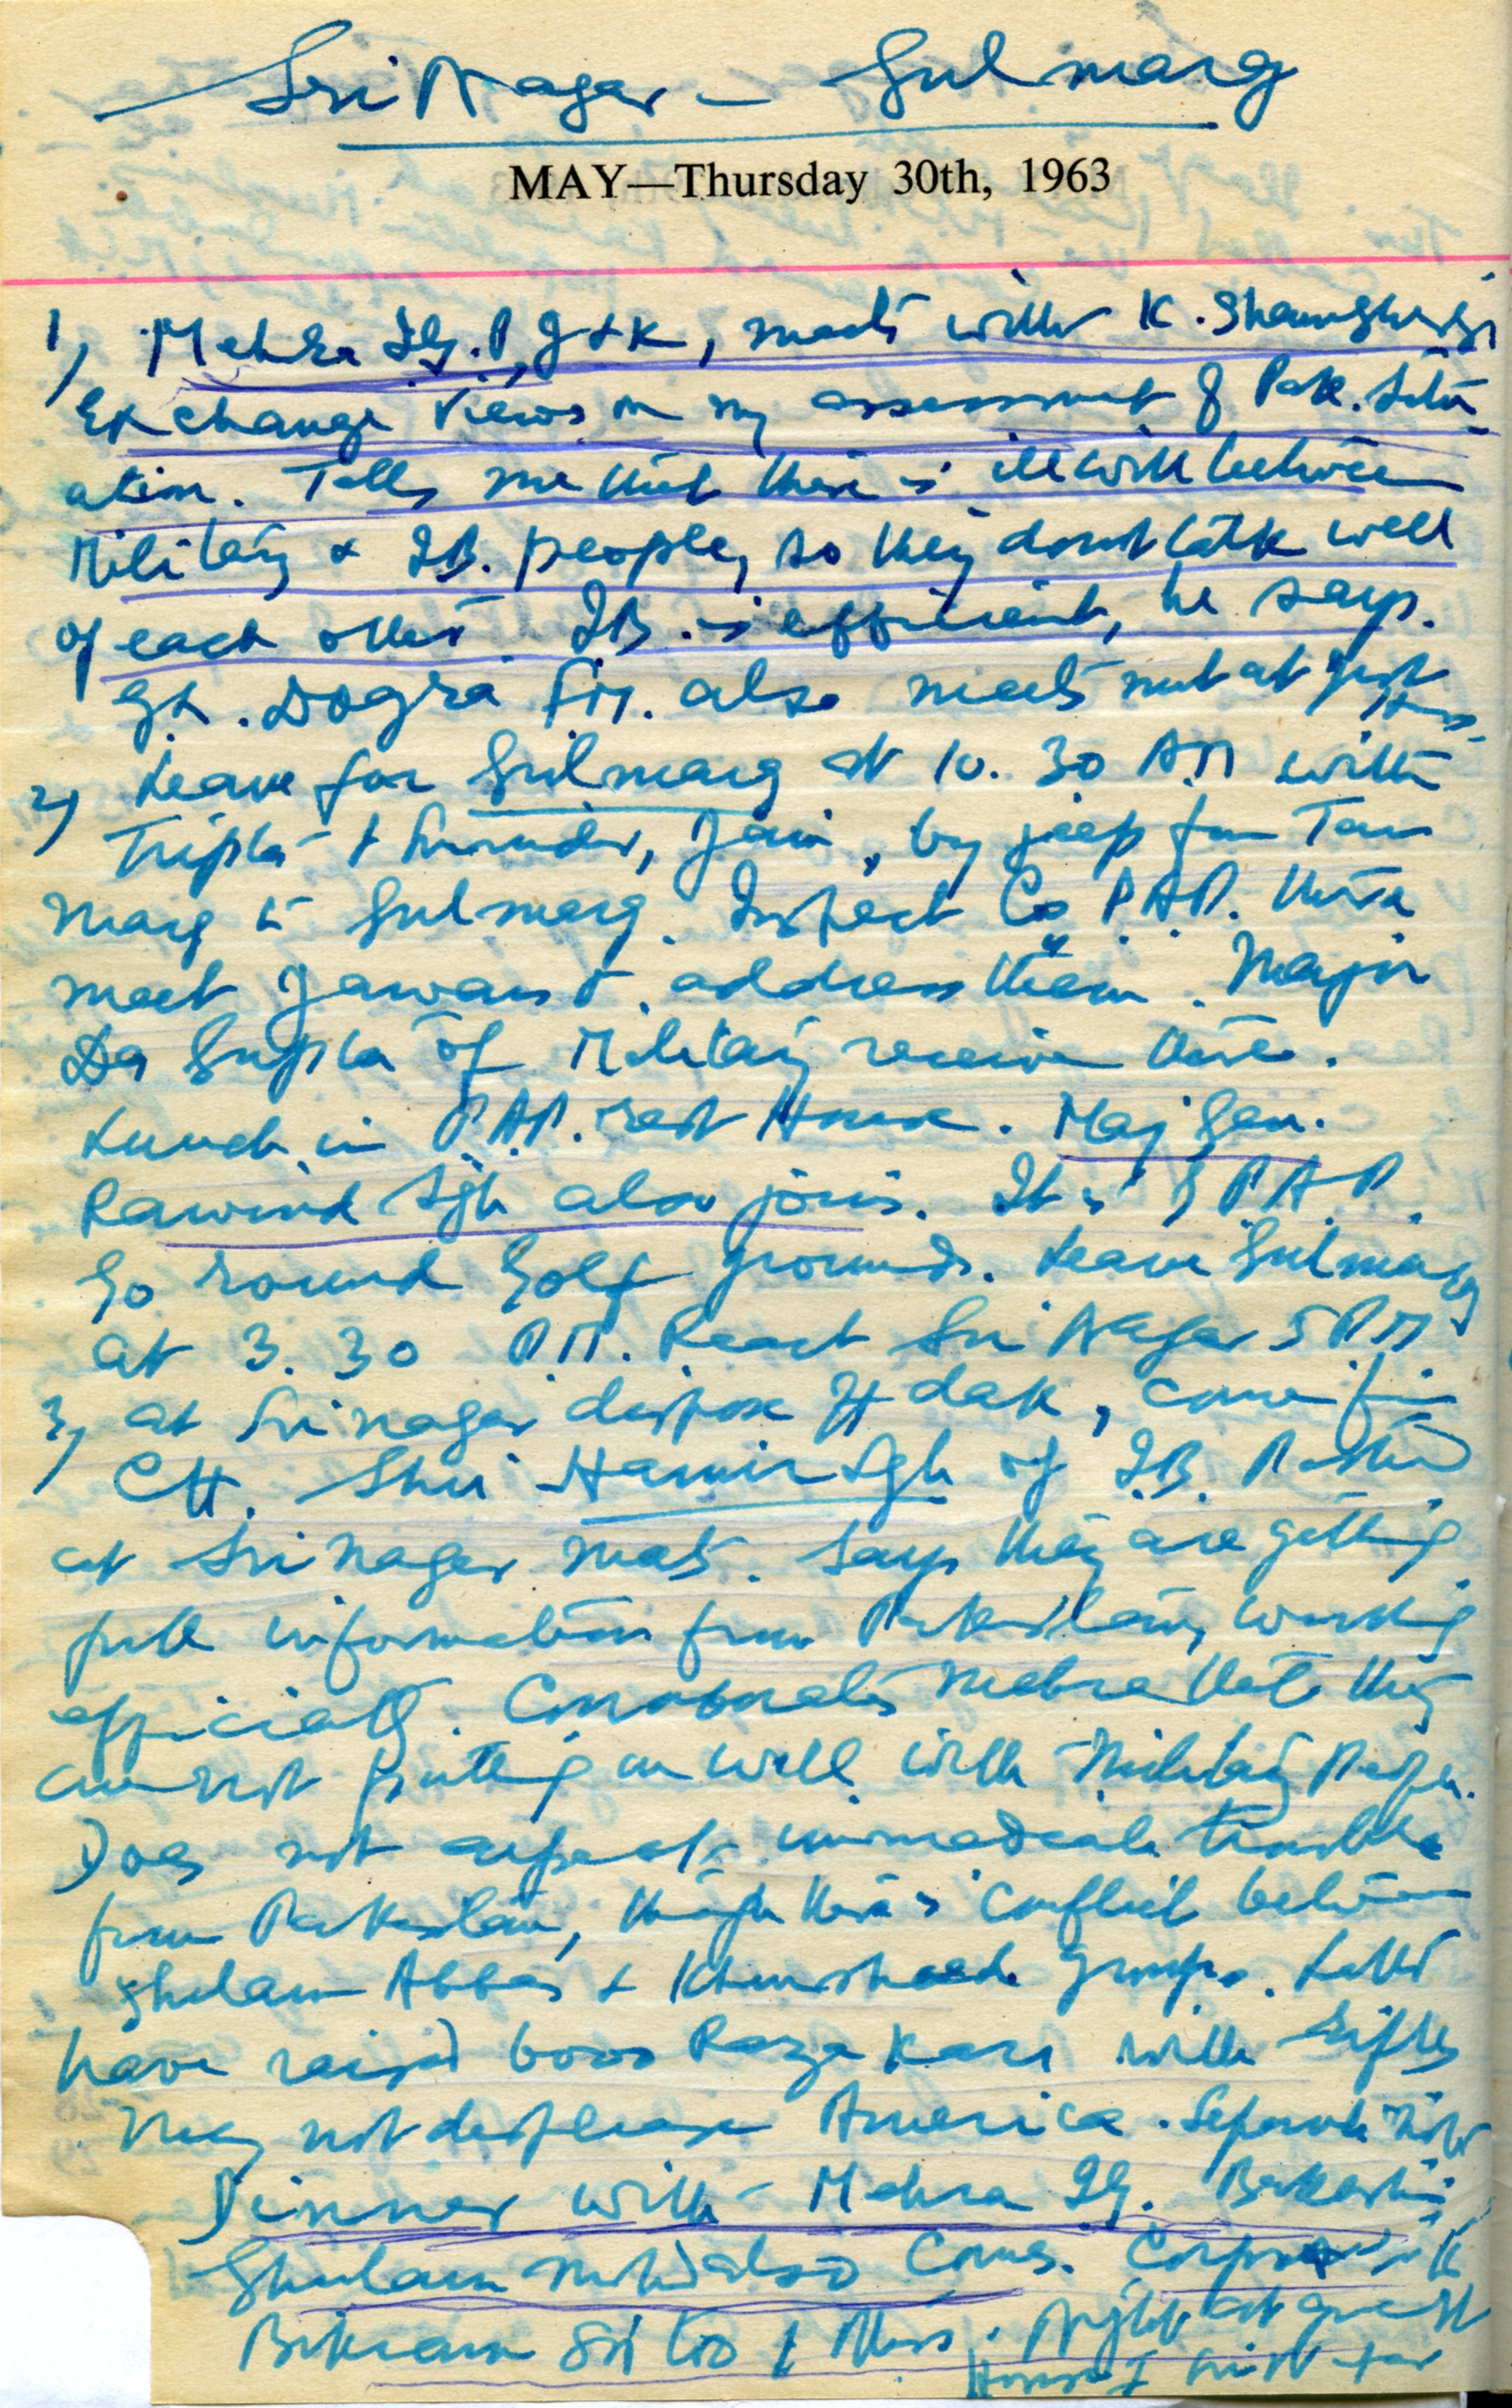 Sri Nagar – Gulmarg
MAY—Thursday 30th, 1963
1, Mehra IG.P, J&K, meets with K.
Exchange views on my assessment of Pak. Situ
ation. Tells me that there is illwill between
Military & IB. people, so they dont talk well
of each other. IB. is efficient, he says.
Dogra FM. also meets me at guest
House
2, Leave for Gulmarg at 10. 30 AM with
Tripta & Jain, by jeep from Tan
Marg to Gulmarg. Inspect Co PAP. there
meet Jawans & address them. Major
Das Gupta of Military receive there.
Lunch in P.A.P. rest House. Maj Gen.
Rawind Sgh also joins. It is of P.A.P.
Go round Golf grounds. Leave Gulmarg
at 3. 30 P.M. Reach Sri Nagar 5 PM
3, at Srinagar dispose of dak,
Shri Hamir Sgh of IB. Posted
at Sri nagar meets. Says they are getting
full information from Pakistan, working
efficiently. Corroborates Mehra that they
are not pulling on well with Military People.
Does not expect immediate trouble
from Pakistan, though there is conflict between
Ghulam Abbas & Khursheed groups. Latter
have raised 6000 Raza Kars with rifles
May not displease America. Separate note
Dinner with Mehra IG. Bakshi
Ghulam Mohd also comes.
Bikram too & Miss. Night at guest
House